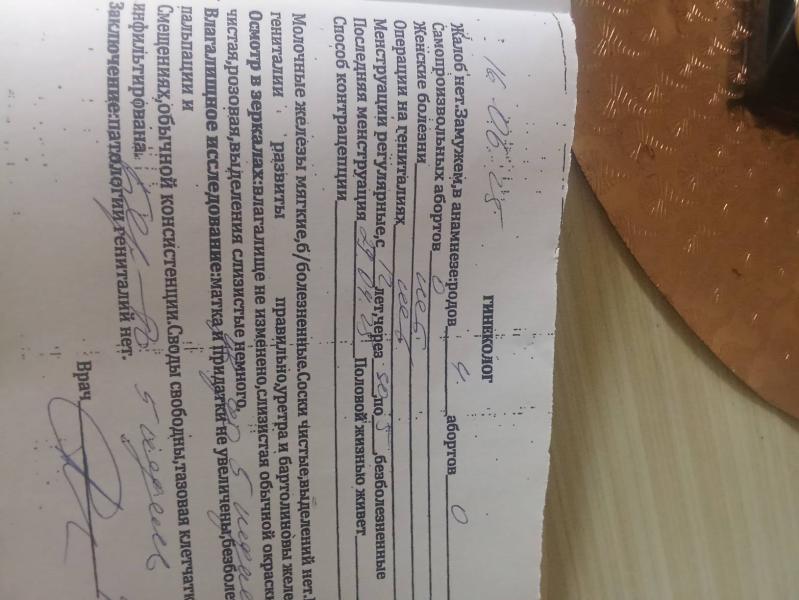 16.06.25
гинеколог
Жалоб нет.Замужем,в анамнезе:родов 4. абортов 0
Самопроизвольных абортов 0
Женские болезни нет
Операции на гениталиях нет
Менструации регулярные,с 12 лет,через 30 по 5 безболезненные
Последняя менструация 29.04.25 Половой жизнью живет
Способ контрацепции
Молочные железы мягкие,б/болезненные.Соски чистые,выделений нет.
гениталии развиты правильно,уретра и бартолиновы желе
Осмотр в зеркалах:влагалище не изменено,слизистая обычной окраски
чистая,розовая,выделения слизистые немного.
Влагалищное исследование:матка и придатки не увеличены,безболе
5 недель
пальпации и
Смещениях,обычной консистенции.Своды свободны,тазовая клетчатк
инфильтрирована.
Заключение:патологии гениталий нет.
5 недель
Врач